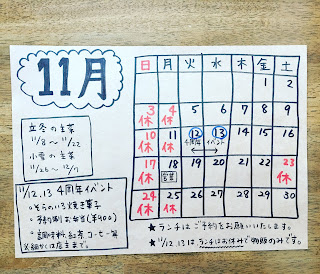 11月
立冬の主菜
11/8 〜 11/22
小雪の主菜
11/26 〜 12/7
11/12.13 4周年イベント
・そらのいろ焼き菓子
・予約制お弁当(¥900)
・調味料, 紅茶, コーヒー等
※細かくは店主まで。
日 月 火 水 木 金 土
1 2
3 4 5 6 7 8 9
休 休
10 11 12 13 14 15 16
休 休 4周年 イベント
17 18 19 20 21 22 23
休 営業 休
24 25 26 27 28 29 30
休 休
★ランチはご予約をお願いいたします。
★11/12.13 はランチはお休みで物販のみです。